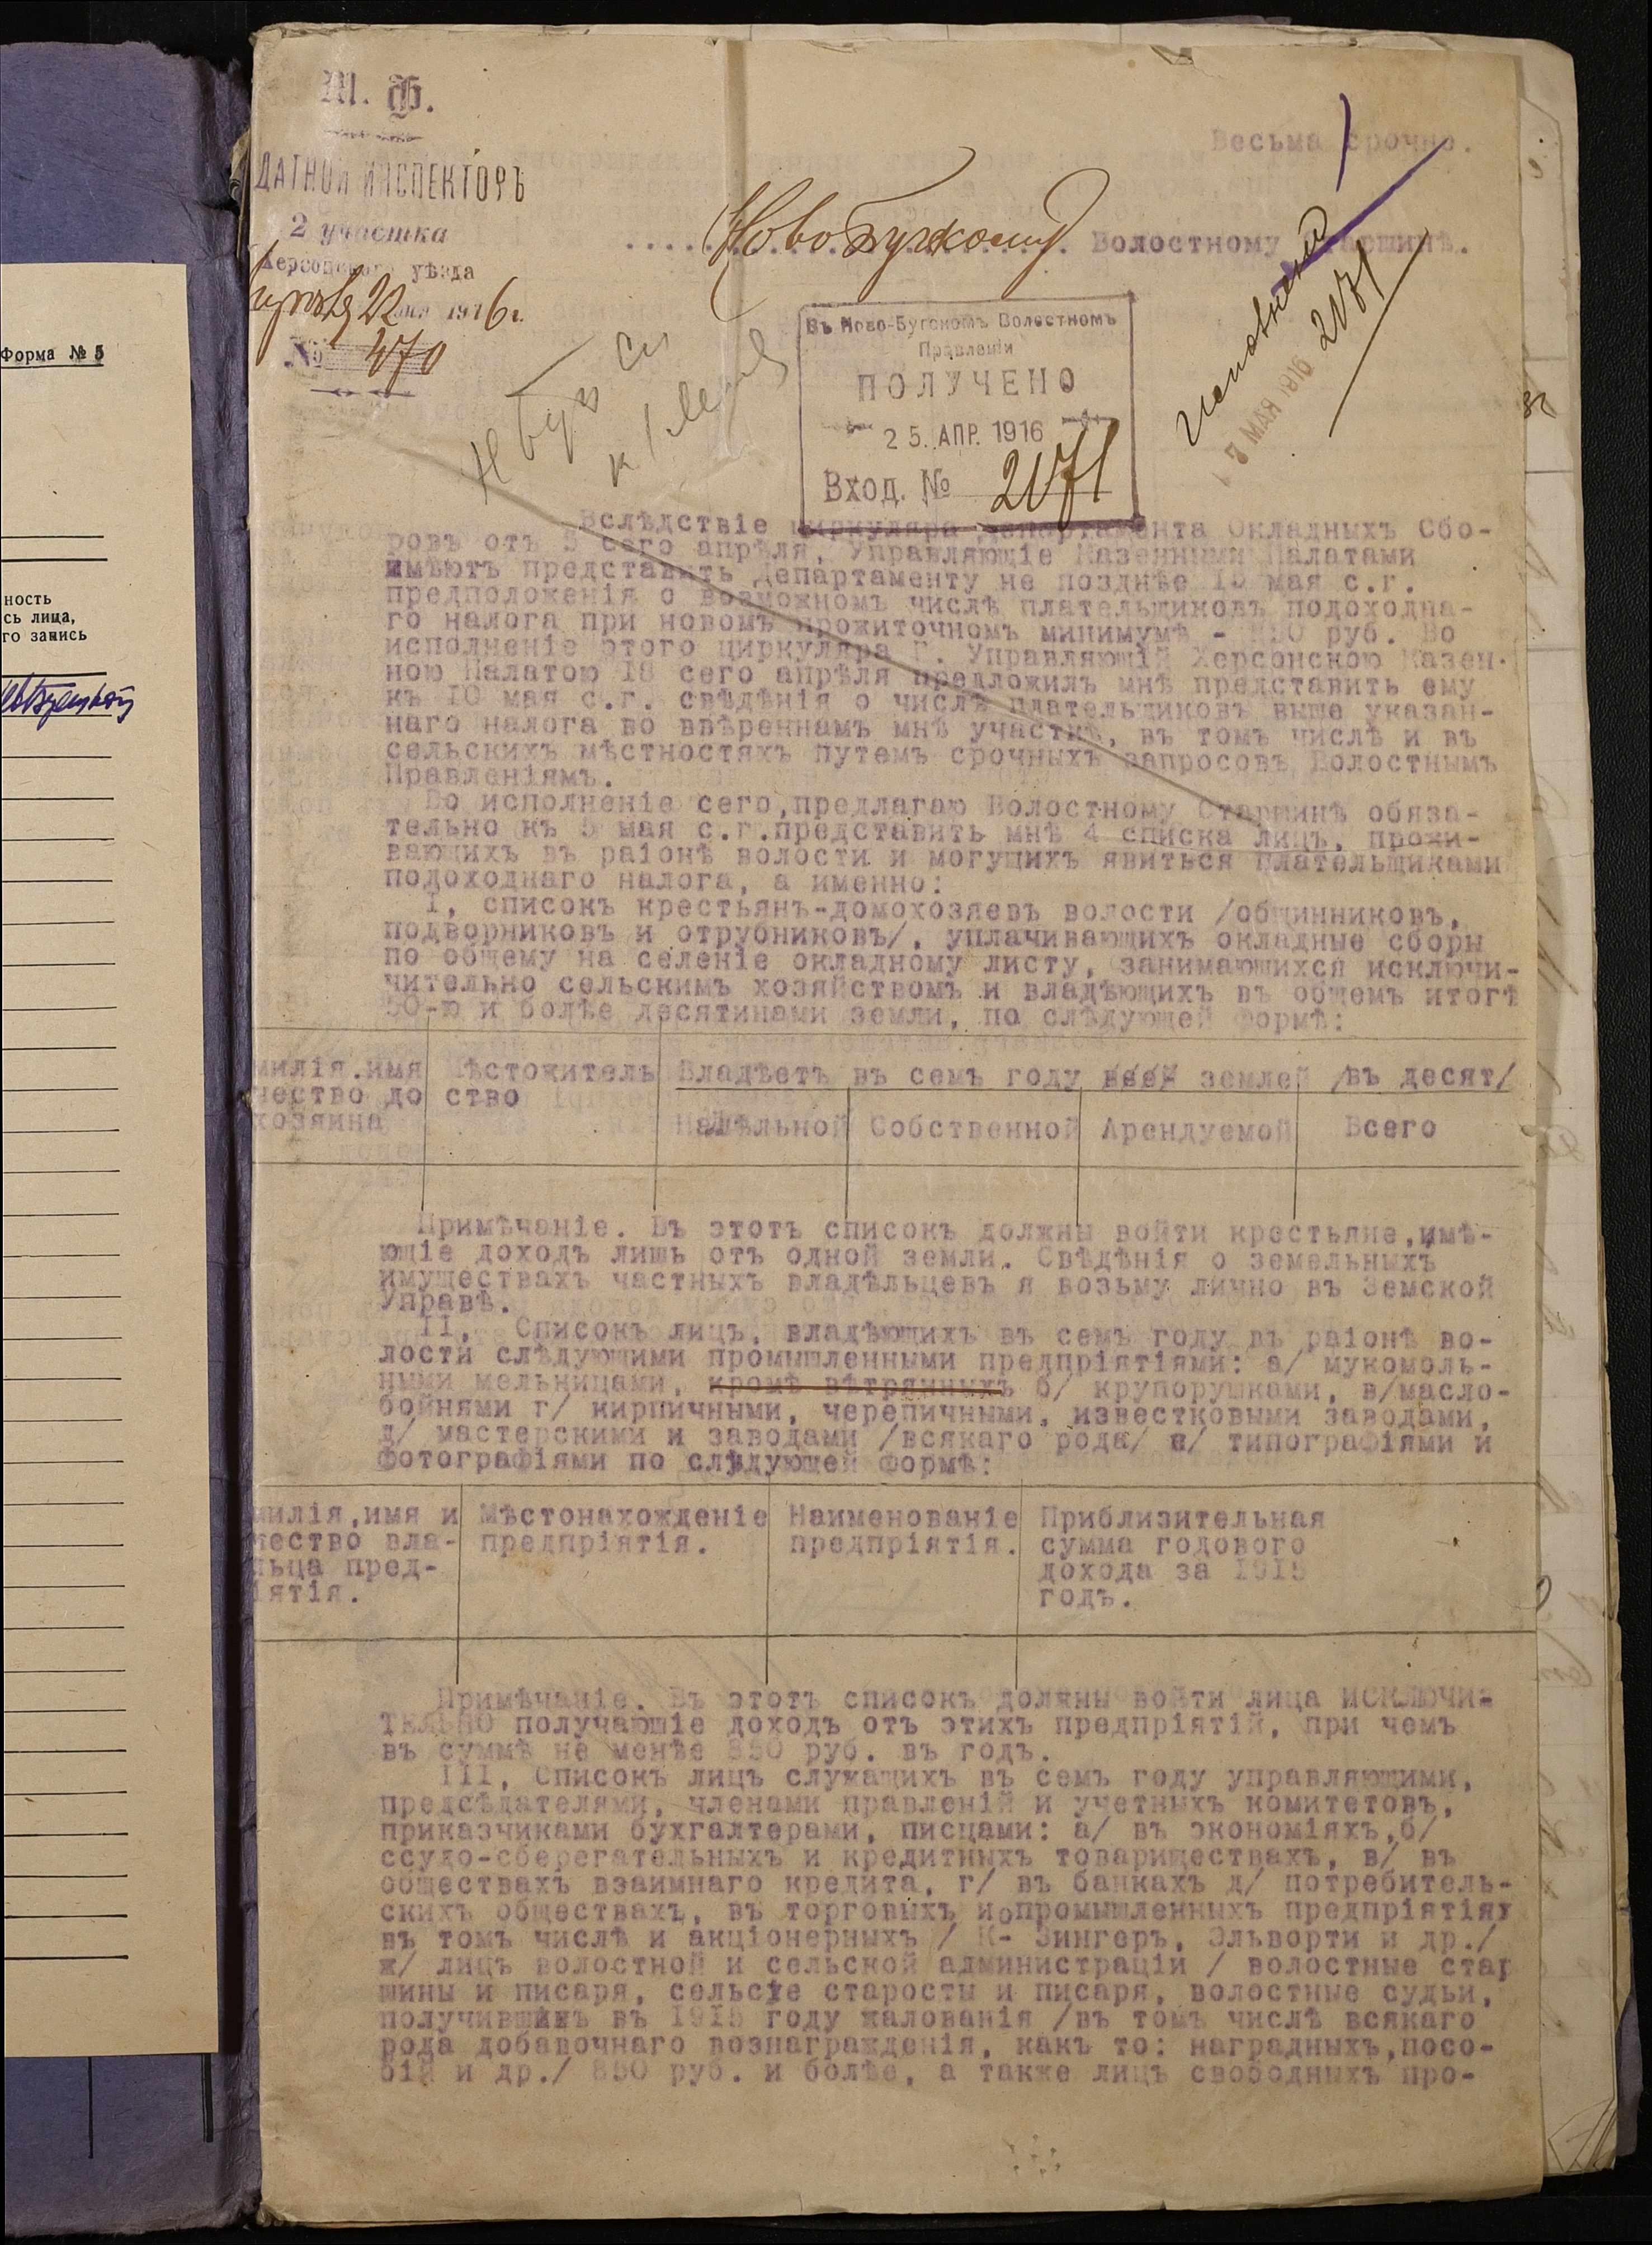 Форма № 5
ность
сь лица,
го запись
М. Ф.
ДАТНОЙ ИНСПЕКТОРЪ
2 участка
Херсонскаго уѣзда
22 1916 г.
№ 470
Весьма срочно.
Ново Бугскому Волостному Старшинѣ.
Въ Ново-Бугскомъ Волостномъ
Правленіи
ПОЛУЧЕНО
25. АПР. 1916
Вход. № 2071
Исполненный
7 МАЯ 1916 2071
Вслѣдствіе циркуляра Департамента Окладныхъ Сбо-
ровъ отъ 5 сего апрѣля, Управляющіе Казенными Палатами
имѣютъ представить Департаменту не позднѣе 15 мая с.г.
предположенія о возможномъ числѣ плательщиковъ подоходна-
го налога при новомъ прожиточномъ минимумѣ - 850 руб. Во
исполненіе этого циркуляра Г. Управляющій Херсонскою Казен-
ною Палатою 18 сего апрѣля предложилъ мнѣ представить ему
къ 10 мая с.г. свѣдѣнія о числѣ плательщиковъ выше указан-
наго налога во ввѣреннамъ мнѣ участкѣ, въ томъ числѣ и въ
сельскихъ мѣстностяхъ путемъ срочныхъ запросовъ Волостнымъ
Правленіямъ.
Во исполненіе сего,предлагаю Волостному Старшинѣ обяза-
тельно къ 5 мая с.г.представить мнѣ 4 списка лицъ, прожи-
вающихъ въ раіонѣ волости и могущихъ явиться плательщиками
подоходнаго налога, а именно:
I, списокъ крестьянъ-домохозяевъ волости /общинниковъ,
подворниковъ и отрубниковъ/, уплачивающихъ окладные сборы
по общему на селеніе окладному листу, занимающихся исключи-
чительно сельскимъ хозяйствомъ и владѣющихъ въ общемъ итогѣ
50-ю и болѣе десятинами земли, по слѣдующей формѣ:
милія.имя Мѣстожитель Владѣетъ въ семъ году землей /въ десят/
чество до ство
хозяина Надѣльной Собственной Арендуемой Всего
Примѣчаніе. Въ этотъ списокъ должны войти крестьяне,имѣ-
ющіе доходъ лишь отъ одной земли. Свѣдѣнія о земельныхъ
имуществахъ частныхъ владѣльцевъ я возьму лично въ Земской
Управѣ.
II, Списокъ лицъ, владѣющихъ въ семъ году въ раіонѣ во-
лости слѣдующими промышленными предпріятіями: а/ мукомоль-
ными мельницами, кромѣ вѣтрянныхъ б/ крупорушками, в/масло-
бойнями г/ кирпичными, черепичными, известковыми заводами,
д/ мастерскими и заводами /всякаго рода/ е/ типографіями и
фотографіями по слѣдующей формѣ:
милія,имя и Мѣстонахожденіе Наименованіе Приблизительная
чество вла- предпріятія. предпріятія. сумма годового
льца пред- дохода за 1915
іятія. годъ.
Примѣчаніе. Въ этотъ списокъ должны войти лица ИСКЛЮЧИ=
ТЕЛЬНО получающіе доходъ отъ этихъ предпріятій, при чемъ
въ суммѣ не менѣе 850 руб. въ годъ.
III, Списокъ лицъ служащихъ въ семъ году управляющими,
предсѣдателями, членами правленій и учетныхъ комитетовъ,
приказчиками бухгалтерами, писцами: а/ въ экономіяхъ,б/
ссудо-сберегательныхъ и кредитныхъ товариществахъ, в/ въ
обществахъ взаимнаго кредита, г/ въ банкахъ д/ потребитель-
скихъ обществахъ, въ торговыхъ и промышленныхъ предпріятіях
въ томъ числѣ и акціонерныхъ / К- Зингеръ, Эльворти и др./
ж/ лицъ волостной и сельской администраціи / волостные стар
шины и писаря, сельсіе старосты и писаря, волостные судьи,
получившихъ въ 1915 году жалованія /въ томъ числѣ всякаго
рода добавочнаго вознагражденія, какъ то: наградныхъ,посо-
бій и др./ 850 руб. и болѣе, а также лицъ свободныхъ про-